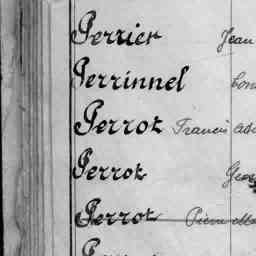 Perrier Jean
Perrinnel
Perrot Francis
Perrot
Perrot Pierre